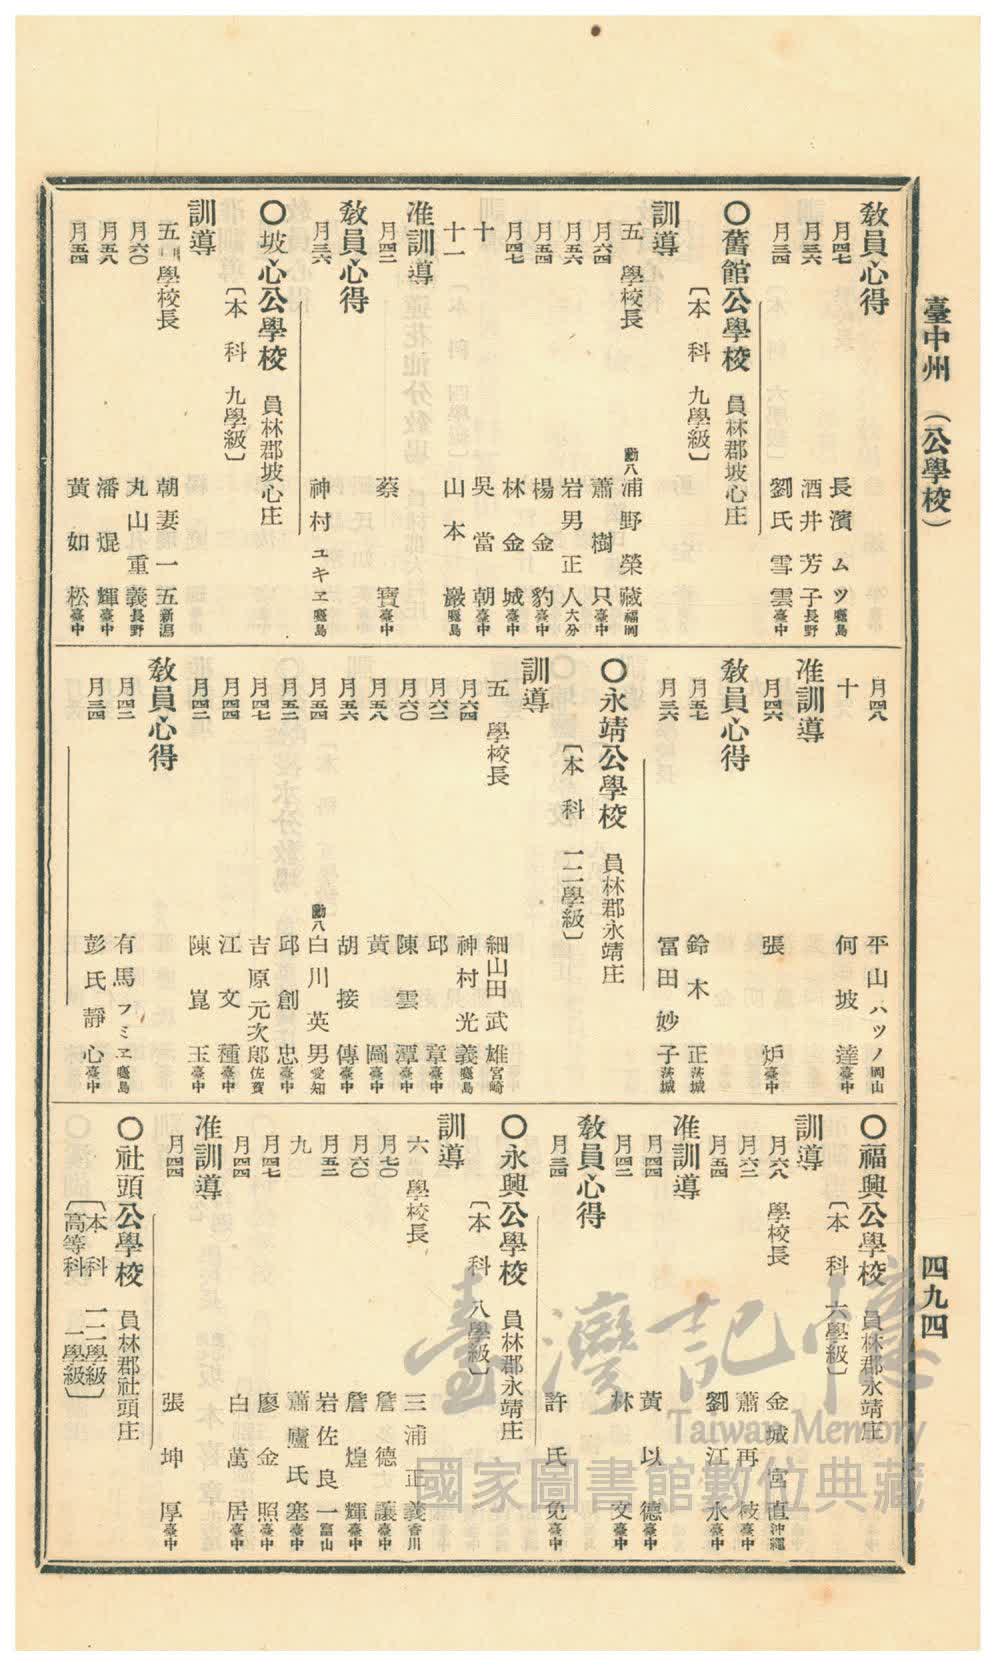 臺中州 （公學校）
四九四
敎員心得
月四七 長濱ムツ 鹿兒島
月三六 酒井芳子 長野
月三四 劉氏雪雲 臺中
〇舊館公學校 員林郡坡心庄
〔本科 九學級〕
訓導
五 學校長 勳八 浦野榮藏 福岡
月六四 蕭樹只 臺中
月五六 岩男正人 大分
月五四 楊金豹 臺中
月四七 林金城 臺中
十 吳當朝 臺中
十一 山本巖 鹿兒島
准訓導
月四二 蔡寶 臺中
敎員心得
月三六 神村ユキヱ 鹿兒島
〇坡心公學校 員林郡坡心庄
〔本科 九學級〕
訓導
五 學校長 朝妻一五 新潟
月六〇 丸山重義 長野
月五八 潘焜輝 臺中
月五四 黃如松 臺中
月四八 平山ハツノ 岡山
十 何坡達 臺中
准訓導
月四六 張炉 臺中
敎員心得
月五七 鈴木正 茨城
月三六 冨田妙子 茨城
〇永靖公學校 員林郡永靖庄
〔本科 一二學級〕
訓導
五 學校長 細山田武雄 宮崎
月六四 神村光義 鹿兒島
月六二 邱章 臺中
月六〇 陳雲潭 臺中
月五八 黃圖 臺中
月五六 胡接傳 臺中
月五四 勳八 白川英男 愛知
月五二 邱創忠 臺中
月四七 吉原元次郎 佐賀
月四四 江文種 臺中
月四二 陳崑玉 臺中
敎員心得
月四二 有馬フミヱ 鹿兒島
月三四 彭氏靜心 臺中
〇福興公學校 員林郡永靖庄
〔本科 六學級〕
訓導
月六八 學校長 金城宮直 沖繩
月六二 蕭再枝 臺中
月五四 劉江永 臺中
准訓導
月四四 黃以德 臺中
月四二 林文 臺中
敎員心得
月三四 許氏免 臺中
〇永興公學校 員林郡永靖庄
〔本科 八學級〕
訓導
六 學校長 三浦正義 香川
月七〇 詹德讓 臺中
月六〇 詹煌輝 臺中
月五二 岩佐良一 富山
九 蕭廬氏塞 臺中
月四七 廖金照 臺中
月四四 白萬居 臺中
准訓導
月四四 張坤厚 臺中
〇社頭公學校 員林郡社頭庄
〔本科 一二學級
高等科 一學級〕
臺灣記憶
Taiwan Memory
國家圖書館數位典藏